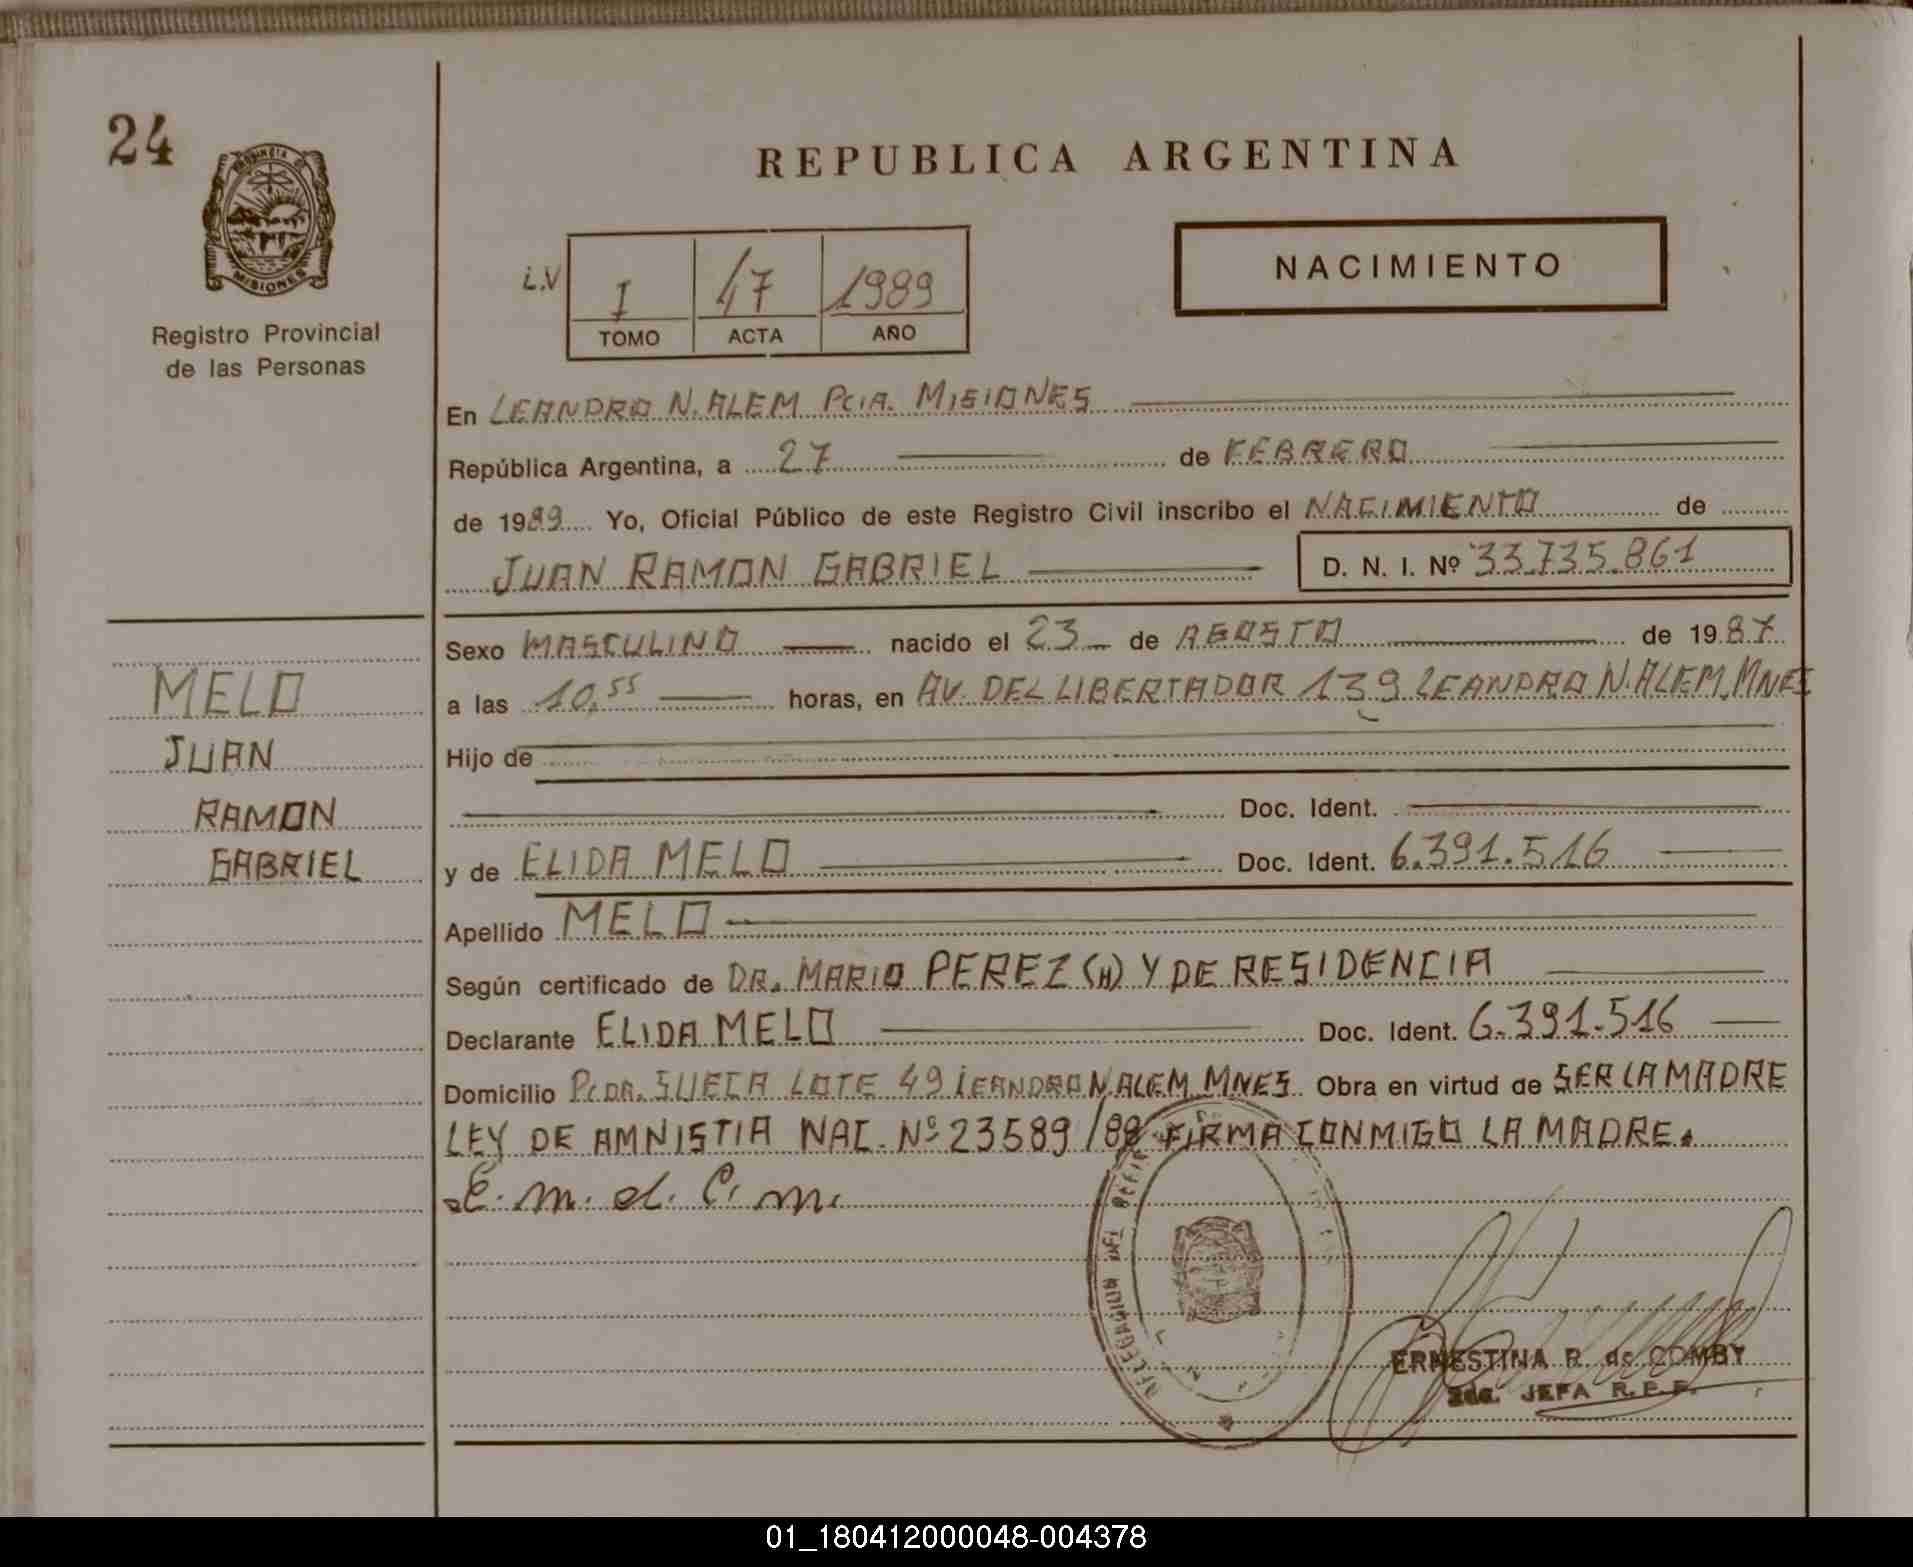 24
PROVINCIA DE
MISIONES
Registro Provincial
de las Personas
MELO
JUAN
RAMON
GABRIEL
REPUBLICA ARGENTINA
L.V
I 47 1989
TOMO ACTA AÑO
NACIMIENTO
En LEANDRO N. ALEM PCIA. MISIONES
República Argentina, a 27 de FEBRERO
de 1989 Yo, Oficial Público de este Registro Civil inscribo el NACIMIENTO de
JUAN RAMON GABRIEL D. N. I. Nº 33.735.861
Sexo MASCULINO nacido el 23 de AGOSTO de 1987
a las 10,55 horas, en AV. DEL LIBERTADOR 139 LEANDRO N. ALEM, MNES
Hijo de
Doc. Ident.
y de ELIDA MELO Doc. Ident. 6.391.516
Apellido MELO
Según certificado de DR. MARIO PEREZ (H) Y DE RESIDENCIA
Declarante ELIDA MELO Doc. Ident. 6.391.516
Domicilio PCDA. SUECA LOTE 49 LEANDRO N ALEM MNES. Obra en virtud de SER LA MADRE
LEY DE AMNISTIA NAC. Nº 23589/88 FIRMA CONMIGO LA MADRE.
E. m. d. C. m.
DELEGACION DEL
ERNESTINA R. de COMBY
JEFA R.P.P.
01_180412000048-004378